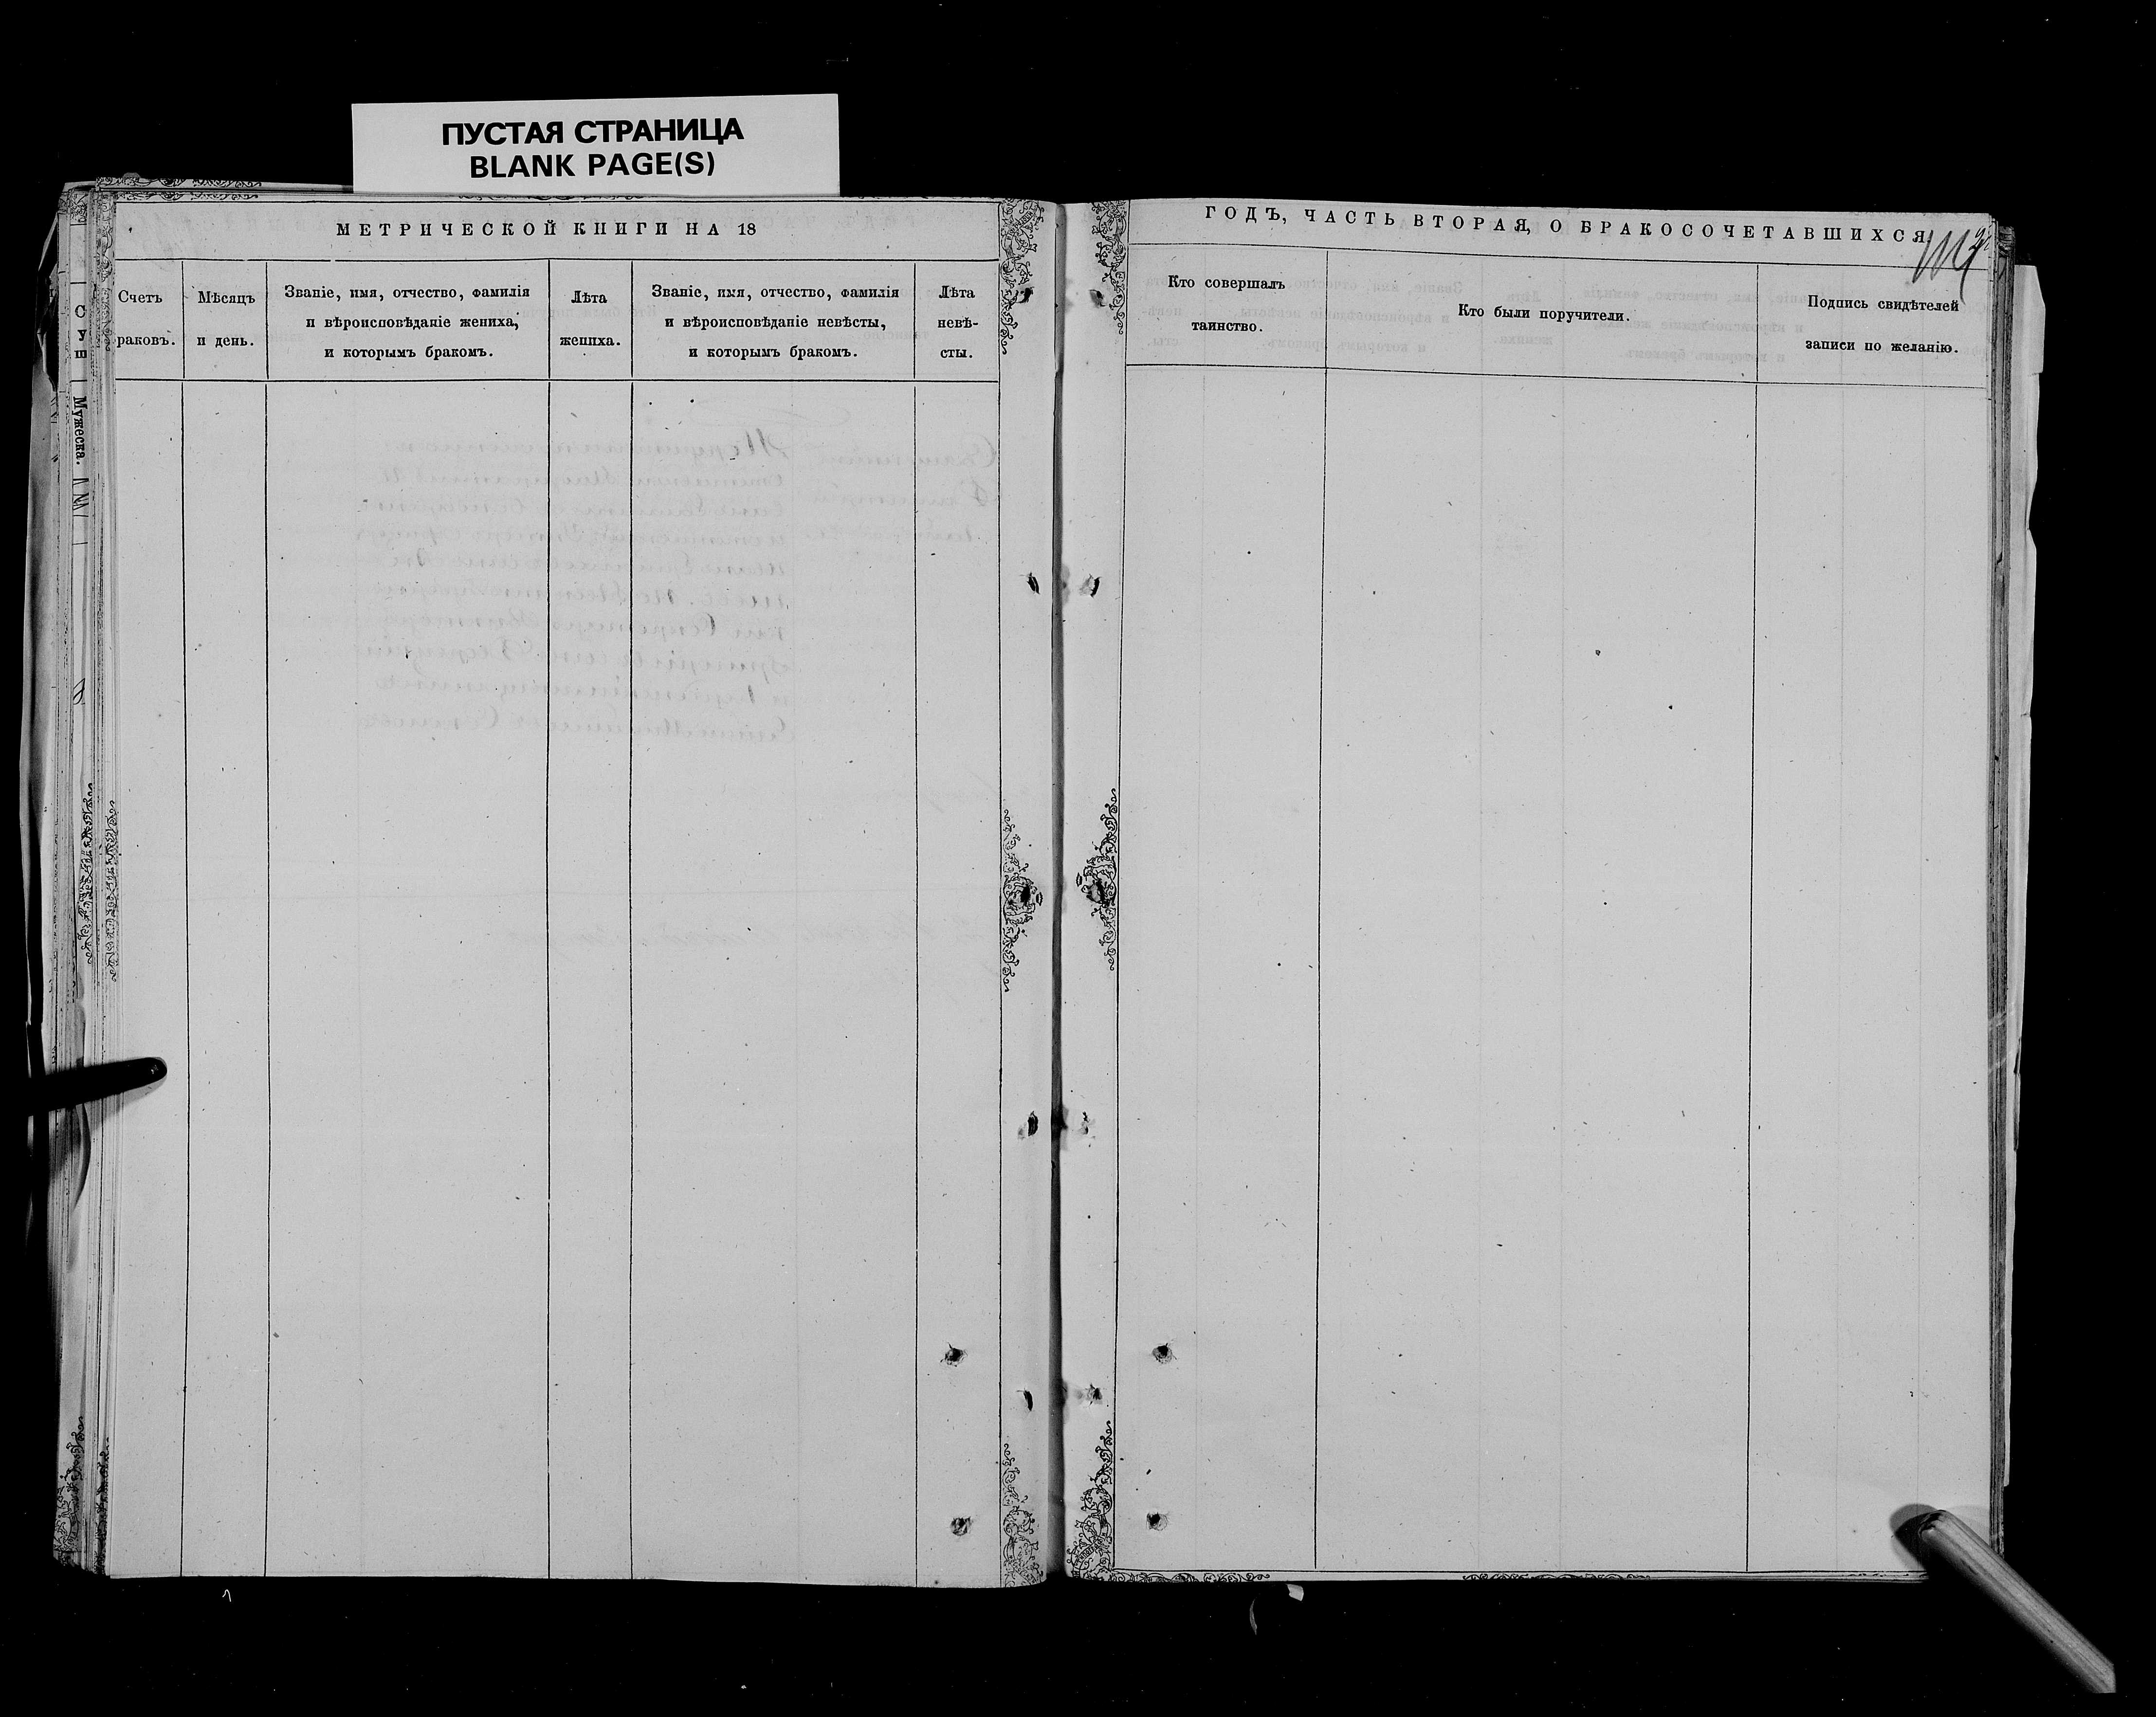 ПУСТАЯ СТРАНИЦА
BLANK PAGE(S)
МЕТРИЧЕСКОЙ КНИГИ НА 18
Счетъ
раковъ.
Мѣсяцъ
и день.
Званіе, имя, отчество, фамилія
и вѣроисповѣданіе жениха,
и которымъ бракомъ.
Лѣта
жениха.
Званіе, имя, отчество, фамилія
и вѣроисповѣданіе невѣсты,
и которымъ бракомъ.
Лѣта
невѣ-
сты.
Мужеска.
ГОДЪ, ЧАСТЬ ВТОРАЯ, О БРАКОСОЧЕТАВШИХСЯ
Кто совершалъ
таинство.
Кто были поручители.
Подпись свидѣтелей
записи по желанію.